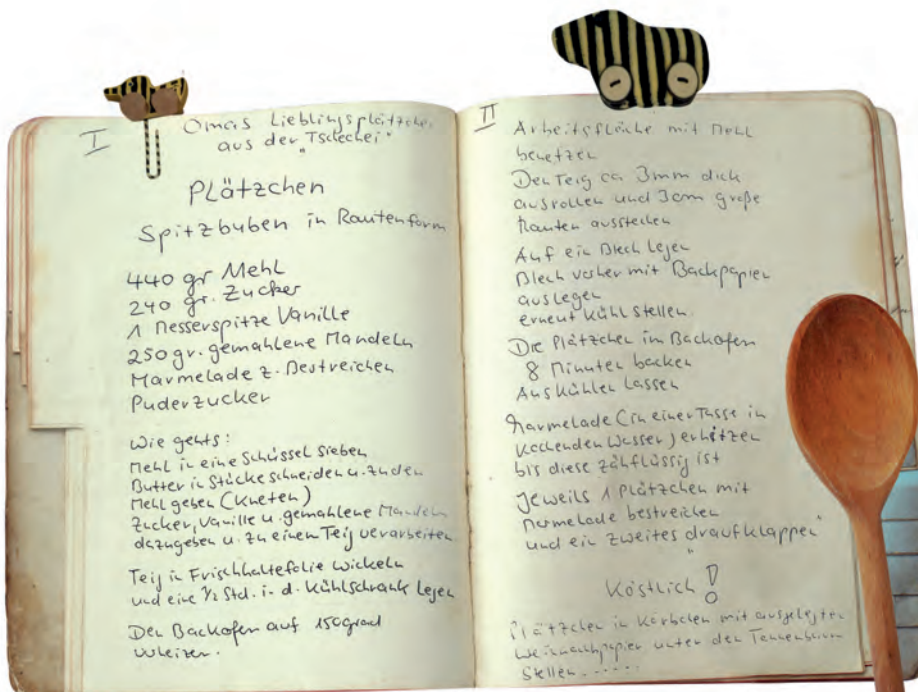 I
Omas Lieblingsplätzchen
aus der „Tschechei"
Plätzchen
Spitzbuben in Rautenform
440 gr Mehl
240 gr. Zucker
1 Messerspitze Vanille
250 gr. gemahlene Mandeln
Marmelade z. Bestreichen
Puderzucker
Wie gehts:
Mehl in eine Schüssel sieben
Butter in Stücke schneiden u. zu den
Mehl geben (Kneten)
Zucker, Vanille u. gemahlene Mandeln
dazugeben u. zu einem Teig verarbeiten
Teig in Frischhaltefolie wickeln
und eine 1/2 Std. i. d. Kühlschrank legen
Den Backofen auf 150 grad
II
Arbeitsfläche mit Mehl
benetzen
Den Teig ca 3mm dick
ausrollen und 3cm große
Rauten ausstechen
Auf ein Blech legen
Blech vorher mit Backpapier
auslegen
erneut Kühl stellen
Die Plätzchen im Backofen
8 Minuten backen
Auskühlen lassen
Marmelade (in einer Tasse in
kochenden Wasser) erhitzen
bis diese zähflüssig ist
Jeweils 1 Plätzchen mit
Marmelade bestreichen
und ein zweites „draufklappen"
Köstlich!
Plätzchen in Körbchen mit ausgelegten
Weihnachtspapier unter den Tannenbaum
stellen......